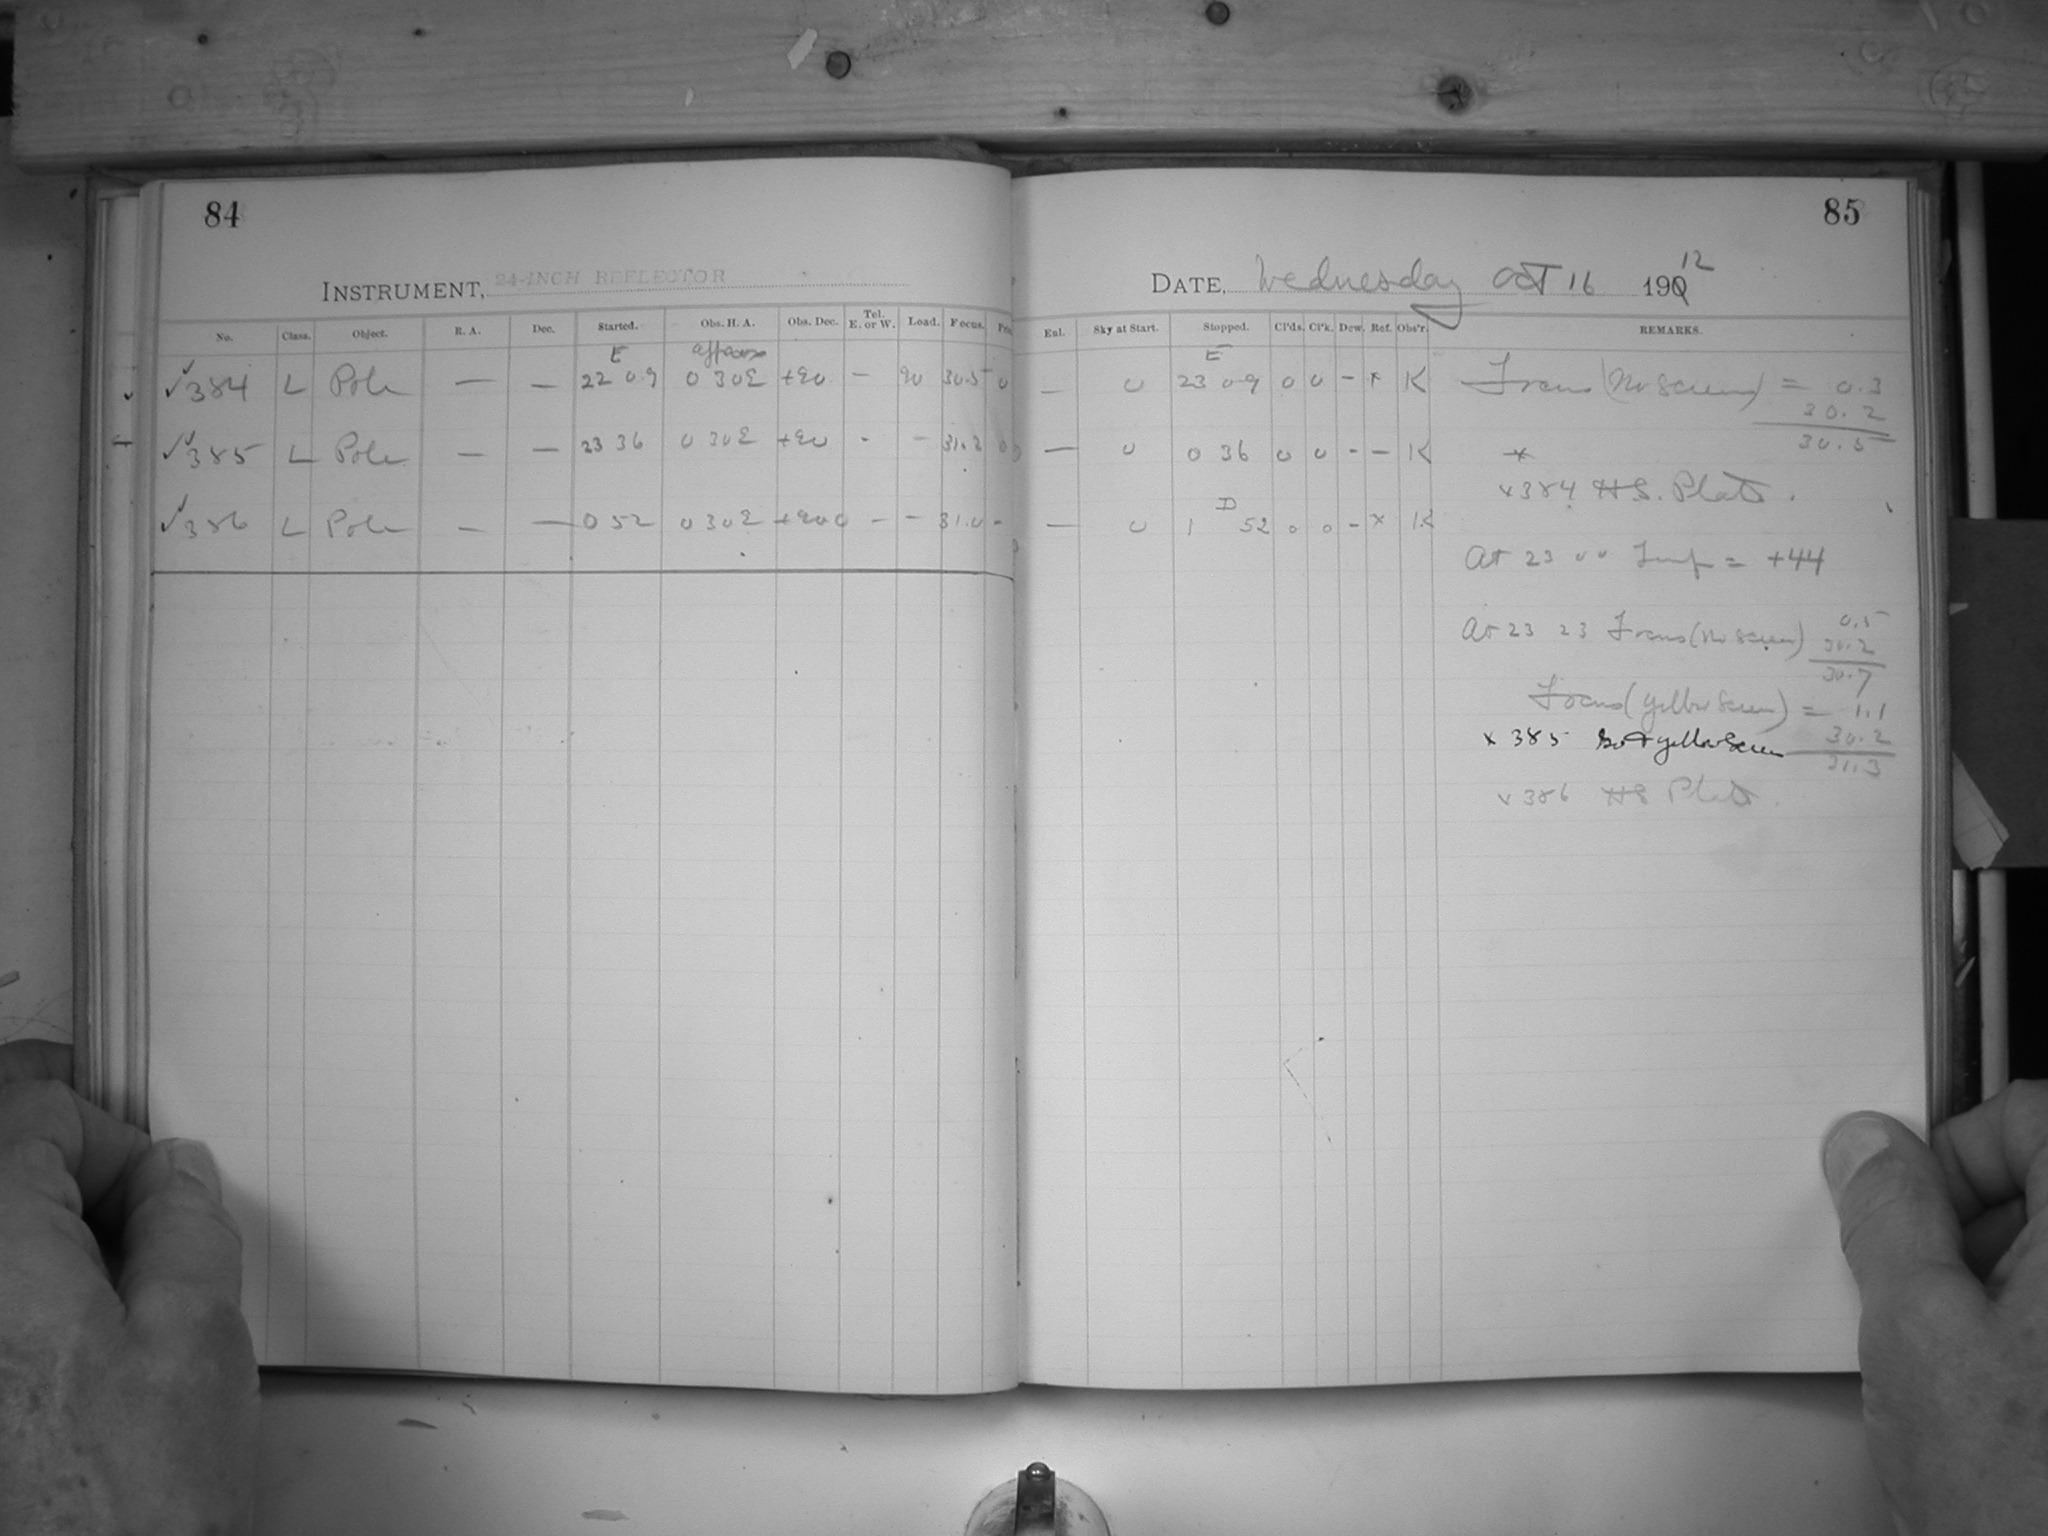 84
INSTRUMENT, 24-INCH REFLECTOR
No. Class. Object. R. A. Dec. Started. Obs. H. A. Obs. Dec. Tel. E. or W. Load. Focus.
E approx
✓384 L Pole — — 22 09 0 30E +90 — 90 30.5 0
✓385 L Pole — — 23 36 0 30E +90 - — 31.2 0
✓386 L Pole — — 0 52 0 30E +90 0 — — 31.0 -
85
DATE, Wednesday Oct 16 1912
Enl. Sky at Start. Stopped. Cl'ds. Cl'k. Dew. Ref. Obs'r. REMARKS.
E
— 0 23 09 0 0 - x K Focus (No Screen) = 0.3
30.2
30.5
— 0 0 36 0 0 - — K x
x384 H.S. Plate.
D
— 0 1 52 0 0 - x K
At 23 00 Temp = +44
At 23 23 Focus (No screen) 0.5
30.2
30.7
Focus (yellow Screen) = 1.1
x 385 yellow Screen 30.2
31.3
x386 HS Plate.